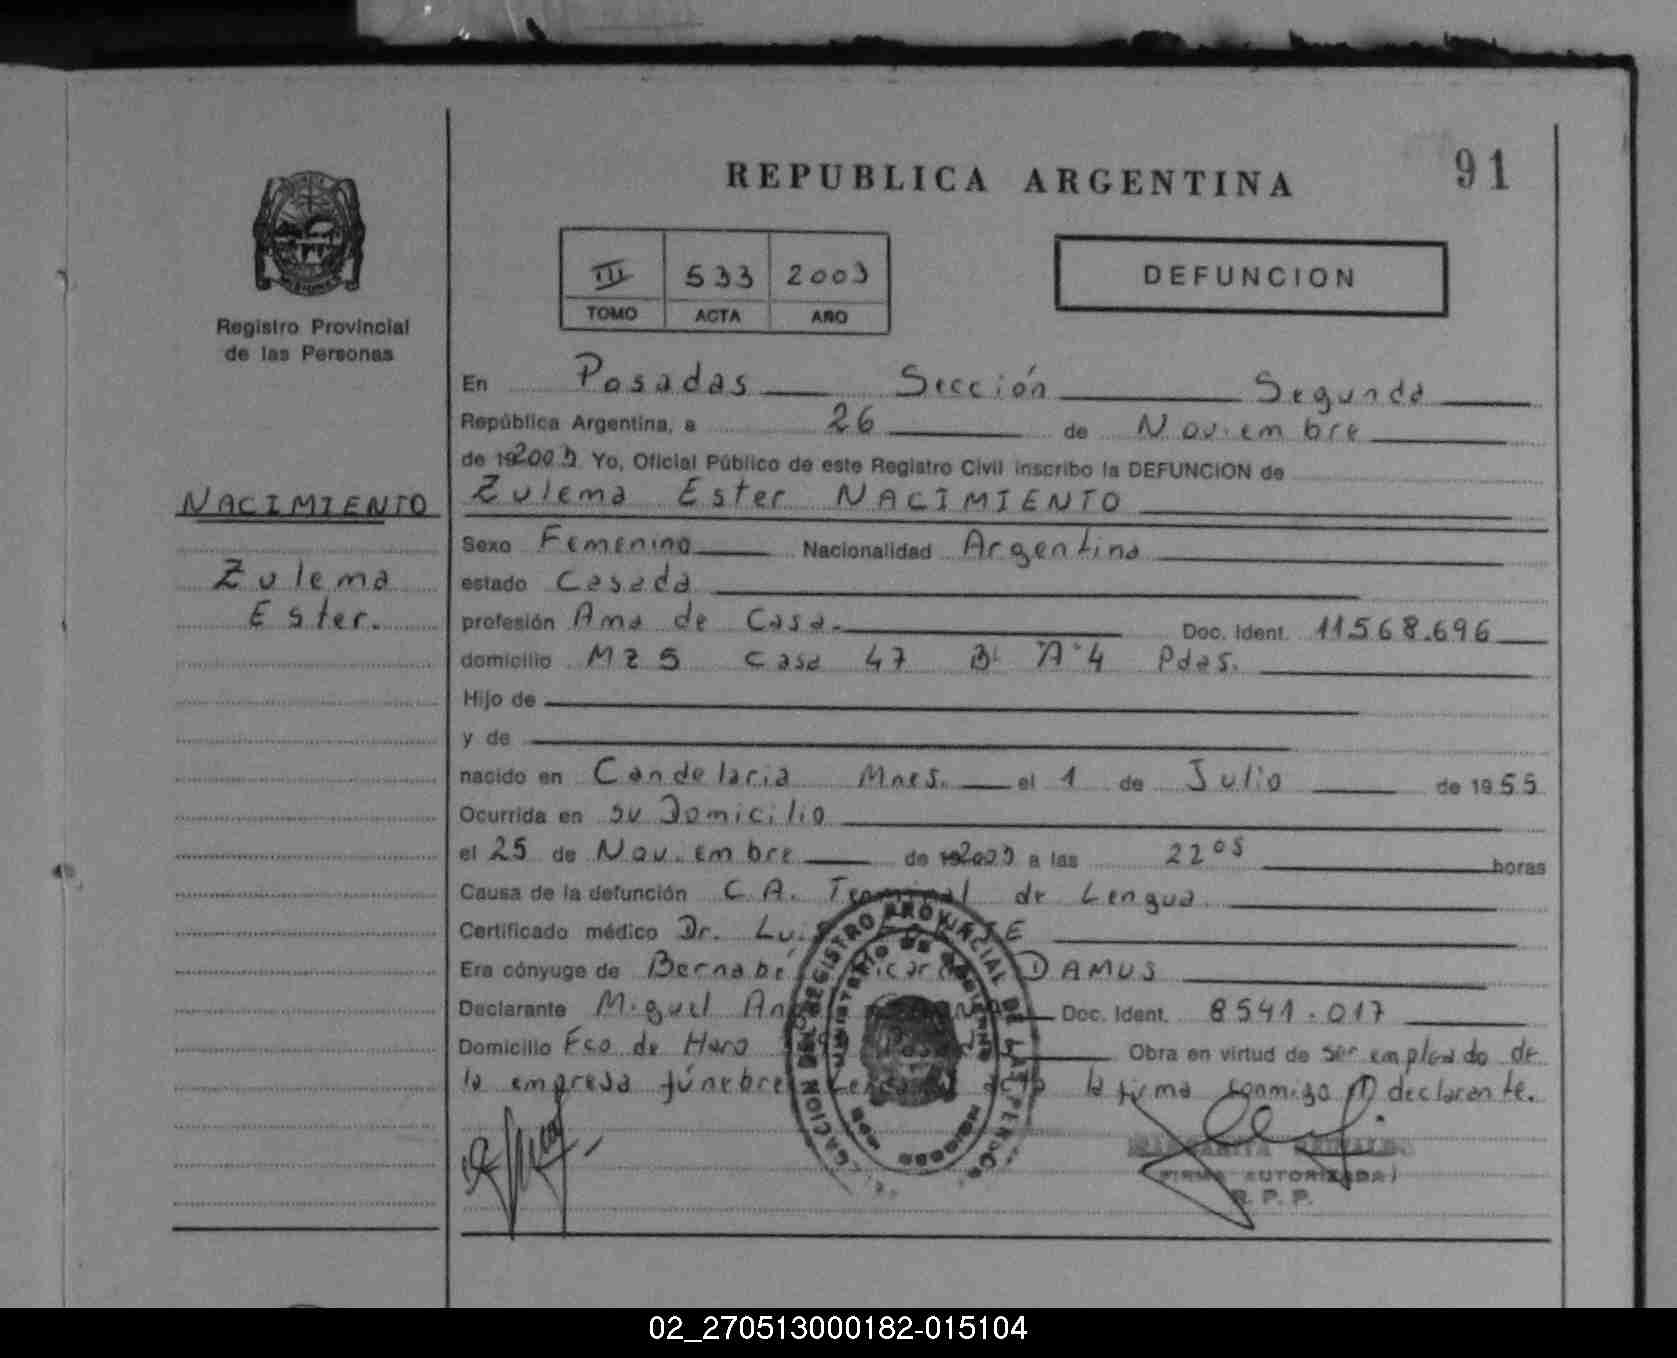 REPUBLICA ARGENTINA
91
Registro Provincial
de las Personas
III 533 2003
TOMO ACTA AÑO
DEFUNCION
En Posadas Sección Segunda
República Argentina, a 26 de Noviembre
de 192003 Yo, Oficial Público de este Registro Civil inscribo la DEFUNCION de
NACIMIENTO
Zulema
Ester.
Zulema Ester NACIMIENTO
Sexo Femenino Nacionalidad Argentina
estado Casada
profesión Ama de Casa. Doc. Ident. 11.568.696
domicilio MZ 5 Casa 47 Bº "A"4 Pdas.
Hijo de
y de
nacido en Candelaria Mnes. el 1 de Julio de 1955
Ocurrida en su Domicilio
el 25 de Noviembre de 192003 a las 22 05 horas
Causa de la defunción C.A. Terminal de Lengua
Certificado médico Dr. Luis
Era cónyuge de Bernabé Ricardo DAMUS
Declarante Miguel Doc. Ident. 8541.017
Domicilio Fco de Haro Obra en virtud de ser empleado de
la empresa fúnebre acta la firma conmigo el declarante.
DEL REGISTRO PROVINCIAL DE LAS PERSONAS
MINISTERIO DE GOBIERNO
FIRMA AUTORIZADA
R. P. P.
02_270513000182-015104